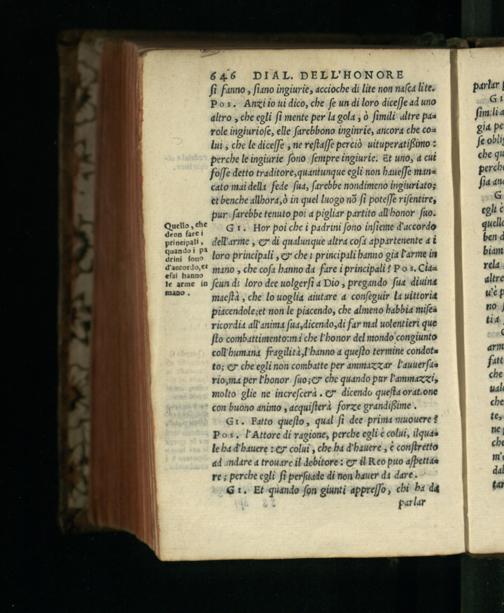 646 DIAL. DELL'HONORE
si fanno, siano ingiurie, accioche di lite non nasca lite.
Pos. Anzi io ui dico, che se un di loro dicesse ad uno
altro, che egli si mente per la gola, ò simili altre pa-
role ingiuriose, elle sarebbono inginrie, ancora che co-
lui, che le dicesse, ne restasse perciò uituperatißimo:
perche le ingiurie sono sempre ingiurie. Et uno, a cui
fosse detto traditore, quantunque egli non hauesse man-
cato mai della fede sua, sarebbe nondimeno ingiuriato;
et benche allhora, ò in quel luogo nõ si potesse risentire,
pur sarebbe tenuto poi a pigliar partito all'honor suo.
GI. Hor poi che i padrini sono insieme d'accordo
dell'arme, & di qualunque altra cosa appartenente a i
loro principali, & che i principali hanno gia l'arme in
mano, che cosa hanno da fare i principali? Pos. Cia-
scun di loro dee uolgersi a Dio, pregando sua diuina
maestà, che lo uoglia aiutare a conseguir la uittoria
piacendole; et non le piacendo, che almeno habbia mise-
ricordia all'anima sua, dicendo, di far mal uolentieri que
sto combattimento: ma che l'honor del mondo congiunto
coll'humana fragilità, l'hanno a questo termine condot-
to; & che egli non combatte per ammazzar l'auuersa-
rio, ma per l'honor suo; & che quando pur l'ammazzi,
molto glie ne increscerà. & dicendo questa oratione
con buono animo, acquisterà forze grandißime.
GI. Fatto questo, qual si dee prima muouere?
Pos. l'Attore di ragione, perche egli è colui, ilqua-
le ha d'hauere: & colui, che ha d'hauere, è constretto
ad andare a trouare il debitore: & il Reo puo aspetta-
re; perche egli si persuade di non hauer da dare.
GI. Et quando son giunti appresso, chi ha da
parlar
Quello, che
deon fare i
principali,
quando i pa
drini sono
d'accordo, et
essi hanno
le arme in
mano.